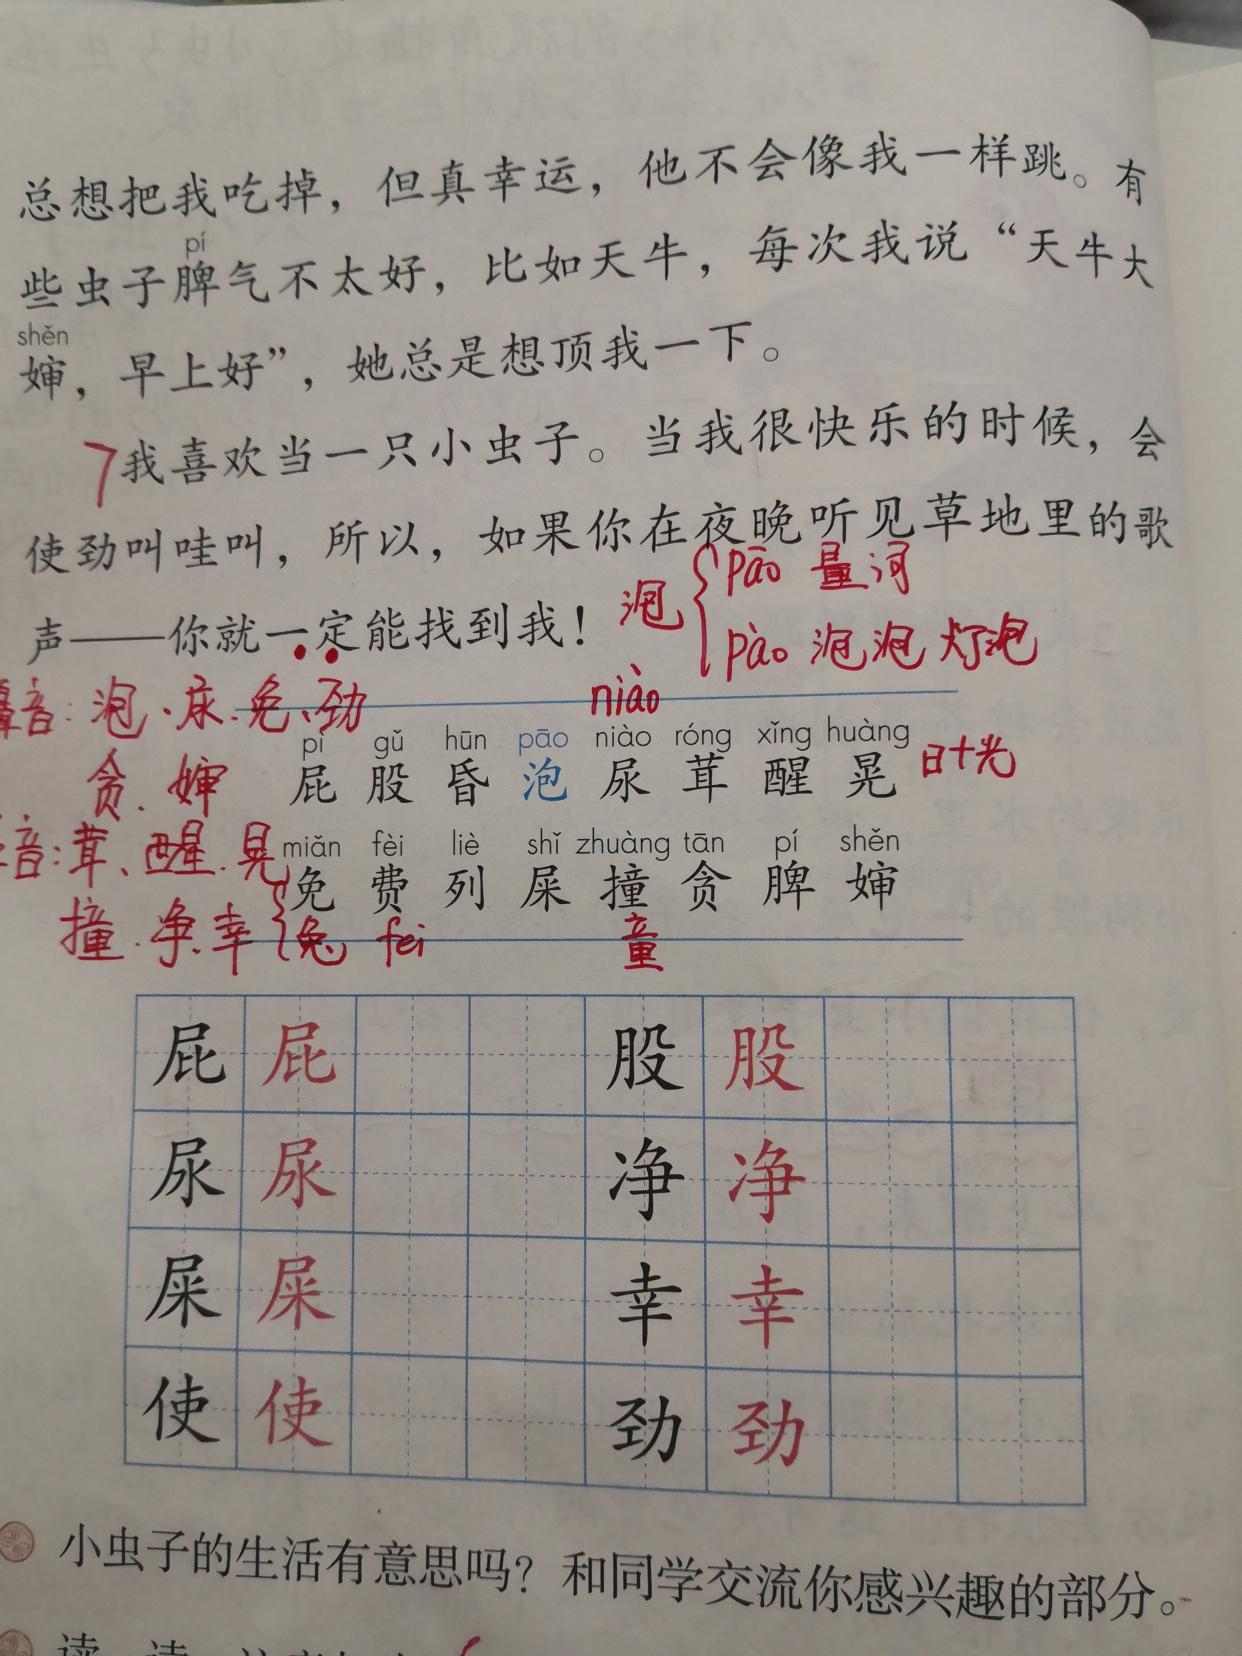 总想把我吃掉，但真幸运，他不会像我一样跳。有
pí
些虫子脾气不太好，比如天牛，每次我说“天牛大
shěn
婶，早上好”，她总是想顶我一下。
7我喜欢当一只小虫子。当我很快乐的时候，会
使劲叫哇叫，所以，如果你在夜晚听见草地里的歌
声——你就一定能找到我！
泡 pāo 量词
pào 泡泡 灯泡
音：泡、尿、免、劲
贪、婶
niào
pì gǔ hūn pāo niào róng xǐng huàng
屁 股 昏 泡 尿 茸 醒 晃
日十光
音：茸、醒、晃
撞、净、幸
miǎn fèi liè shǐ zhuàng tān pí shěn
免 费 列 屎 撞 贪 脾 婶
兔 fei 童
屁 屁 股 股
尿 尿 净 净
屎 屎 幸 幸
使 使 劲 劲
小虫子的生活有意思吗？和同学交流你感兴趣的部分。